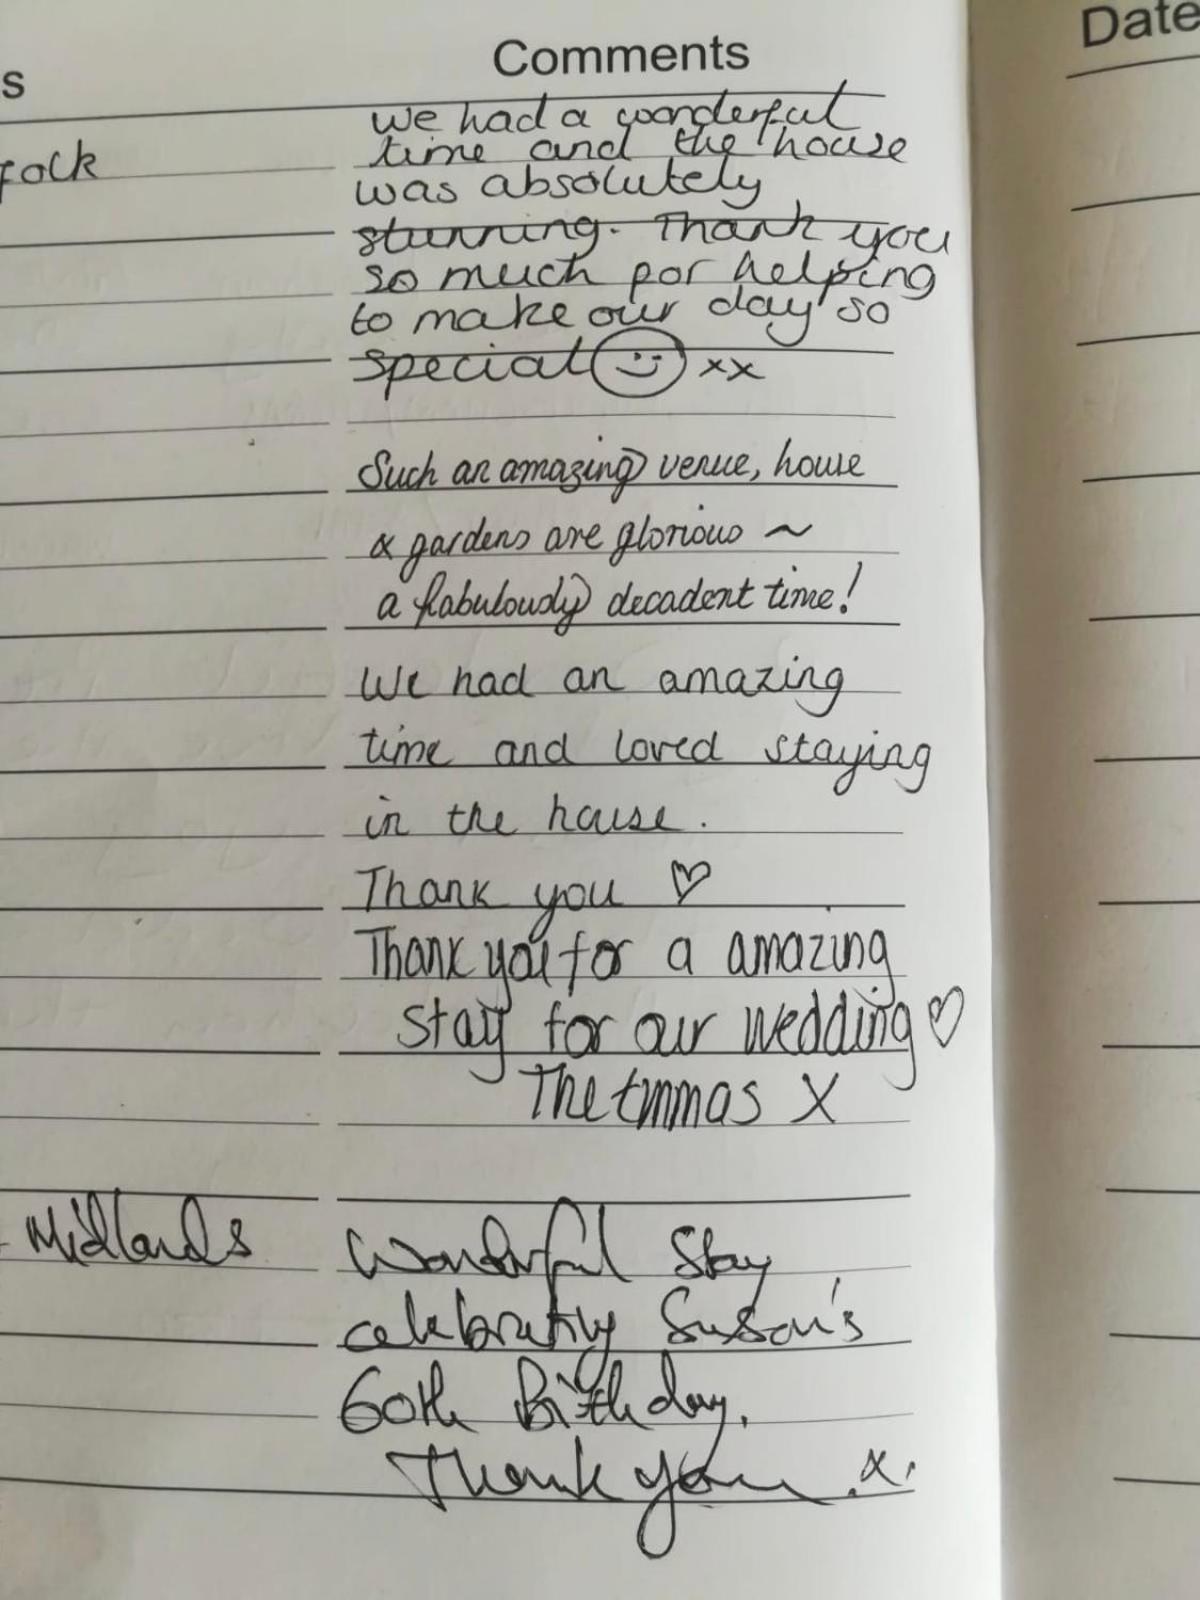 s Comments Date
we had a wonderful
time and the house
folk was absolutely
stunning. Thank you
so much for helping
to make our day so
special xx
Such an amazing venue, house
& gardens are glorious ~
a fabulously decadent time!
We had an amazing
time and loved staying
in the house.
Thank you ♡
Thank you for a amazing
stay for our wedding ♡
The X
Midlands Wonderful Stay
celebrating Susan's
60th Birthday.
Thank you .x.